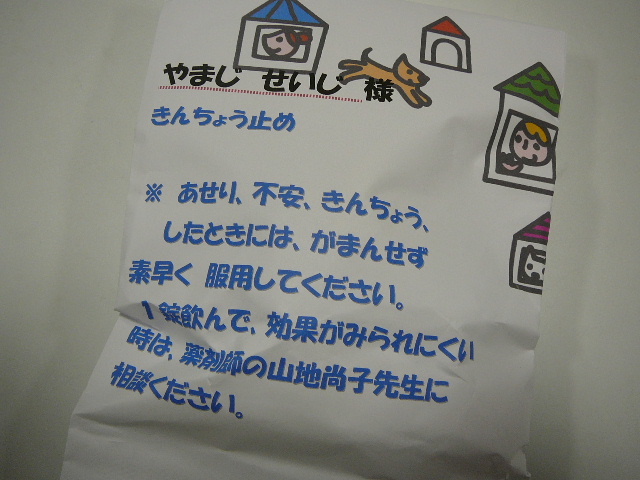 やまじ せいじ 様
きんちょう止め
※ あせり、不安、きんちょう、
したときには、がまんせず
素早く 服用してください。
1錠飲んで、効果がみられにくい
時は、薬剤師の山地尚子先生に
相談ください。